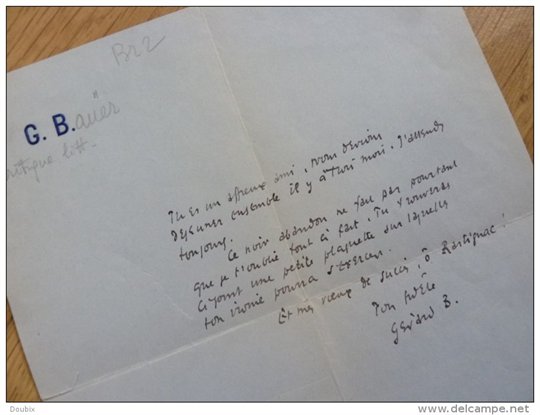 Br2
G. B.auër
critique litt.
Tu es un affreux ami. Nous devions
déjeuner ensemble il y a trois mois. J'attends
toujours.
Ce noir abandon ne fait pas pourtant
que je t'oublie tout à fait. Tu trouveras
ci-joint une petite plaquette sur laquelle
ton ironie pourra s'exercer.
Et mes vœux de succès, ô Rastignac !
Ton fidèle
Gérard B.
Doubix
www.delcampe.net